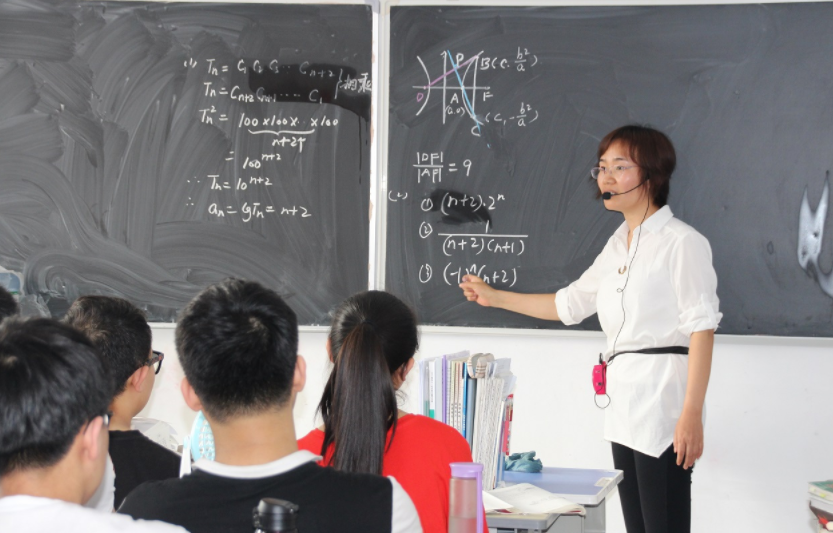 (1) Tn = C1 C2 C3 ... Cn+2
Tn = Cn+2 Cn+1 ... C1
Tn² = 100×100×...×100
n+2个
= 100^(n+2)
∴ Tn = 10^(n+2)
∴ an = lg Tn = n+2
P
B(c, b²/a)
O
A
F
(2,0)
C
(c, -b²/a)
|DF|/|AF| = 9
(2)
① (n+2)·2ⁿ
② 1/((n+2)(n+1))
③ (-1)ⁿ(n+2)